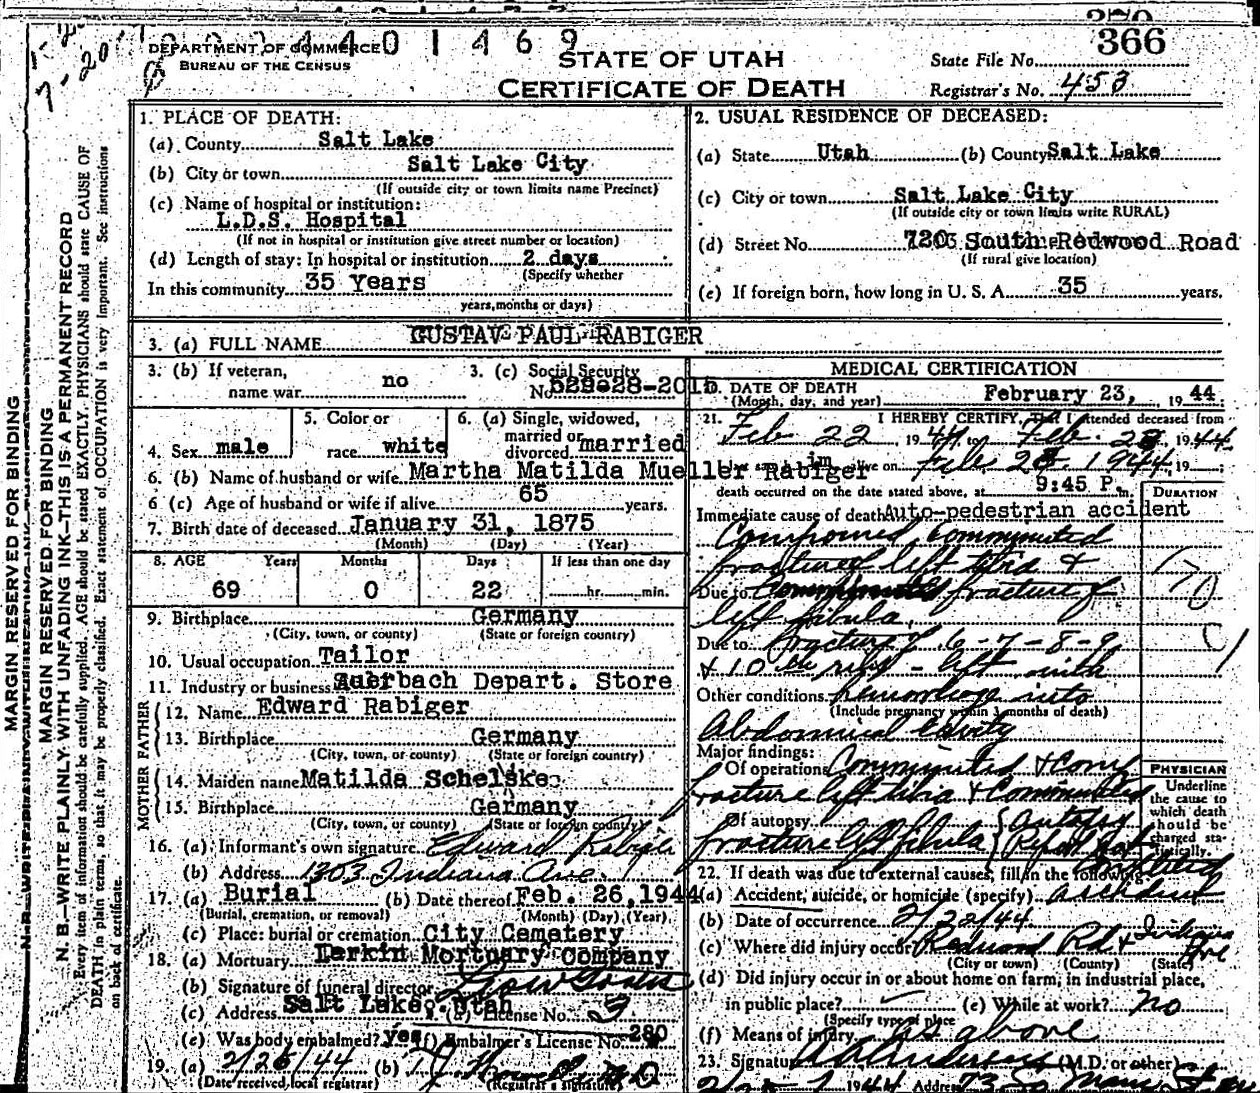 370
366
4401469
7-20
DEPARTMENT OF COMMERCE
BUREAU OF THE CENSUS
STATE OF UTAH
CERTIFICATE OF DEATH
State File No.
Registrar's No. 453
MARGIN RESERVED FOR BINDING
MARGIN RESERVED FOR BINDING
N. B.—WRITE PLAINLY WITH UNFADING INK—THIS IS A PERMANENT RECORD
Every item of information should be carefully supplied. AGE should be stated EXACTLY. PHYSICIANS should state CAUSE OF
DEATH in plain terms, so that it may be properly classified. Exact statement of OCCUPATION is very important. See instructions
on back of certificate.
1. PLACE OF DEATH:
(a) County Salt Lake
(b) City or town Salt Lake City
(If outside city or town limits name Precinct)
(c) Name of hospital or institution:
L.D.S. Hospital
(If not in hospital or institution give street number or location)
(d) Length of stay: In hospital or institution 2 days
(Specify whether
In this community 35 Years
years, months or days)
2. USUAL RESIDENCE OF DECEASED:
(a) State Utah (b) County Salt Lake
(c) City or town Salt Lake City
(If outside city or town limits write RURAL)
(d) Street No. South Redwood Road
(If rural give location)
(e) If foreign born, how long in U. S. A. 35 years.
3. (a) FULL NAME GUSTAV PAUL RABIGER
3. (b) If veteran,
name war no
3. (c) Social Security
No. 529-28-2015
4. Sex male
5. Color or
race white
6. (a) Single, widowed,
married or
divorced married
6. (b) Name of husband or wife Martha Matilda Mueller Rabiger
6 (c) Age of husband or wife if alive 65 years.
7. Birth date of deceased January 31, 1875
(Month) (Day) (Year)
8. AGE Years Months Days If less than one day
69 0 22 hr. min.
9. Birthplace Germany
(City, town, or county) (State or foreign country)
10. Usual occupation Tailor
11. Industry or business Auerbach Depart. Store
FATHER
12. Name Edward Rabiger
13. Birthplace Germany
(City, town, or county) (State or foreign country)
MOTHER
14. Maiden name Matilda Schelske
15. Birthplace Germany
(City, town, or county) (State or foreign country)
16. (a) Informant's own signature Edward Rabiger
(b) Address 1303 Indiana Ave.
17. (a) Burial (b) Date thereof Feb. 26, 1944
(Burial, cremation, or removal) (Month) (Day) (Year)
(c) Place: burial or cremation City Cemetery
18. (a) Mortuary Larkin Mortuary Company
(b) Signature of funeral director
(c) Address Salt Lake, Utah License No. 3
(e) Was body embalmed? Yes (f) Embalmer's License No. 280
19. (a) 2/26/44 (b)
(Date received local registrar) (Registrar's signature)
MEDICAL CERTIFICATION
DATE OF DEATH
(Month, day, and year) February 23, 1944
21. I HEREBY CERTIFY, That I attended deceased from
Feb 22, 1944 to Feb. 23, 1944
im alive on Feb. 23, 1944, 19
death occurred on the date stated above, at 9:45 P. m.
DURATION
Immediate cause of death Auto-pedestrian accident
Compound comminuted
fracture of left tibia &
Due to fracture of
left fibula,
Due to fracture of 6-7-8-9
& 10th right - left ninth
Other conditions hemorrhage into
(Include pregnancy within 3 months of death)
Abdominal Cavity
Major findings:
Of operations Comminuted & Comp
fracture left tibia & Comminuted
Of autopsy
fracture left fibula
Autopsy
Report
PHYSICIAN
Underline
the cause to
which death
should be
charged sta-
tistically.
22. If death was due to external causes, fill in the following:
(a) Accident, suicide, or homicide (specify) Accident
(b) Date of occurrence 2/22/44
(c) Where did injury occur? Redwood Rd & Indiana Ave
(City or town) (County) (State)
(d) Did injury occur in or about home on farm, in industrial place,
in public place? (e) While at work? no
(Specify type of place)
(f) Means of injury as above
23. Signature (M.D. or other)
1944 Address 73 So Main St